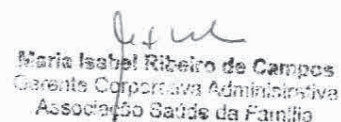 Maria Isabel Ribeiro de Campos
Gerente Corporativa Administrativa
Associação Saúde da Família